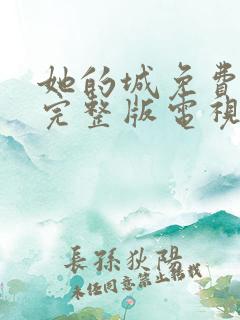 她的城免費
完整版電視
長孫狄陽
未经同意禁止转载